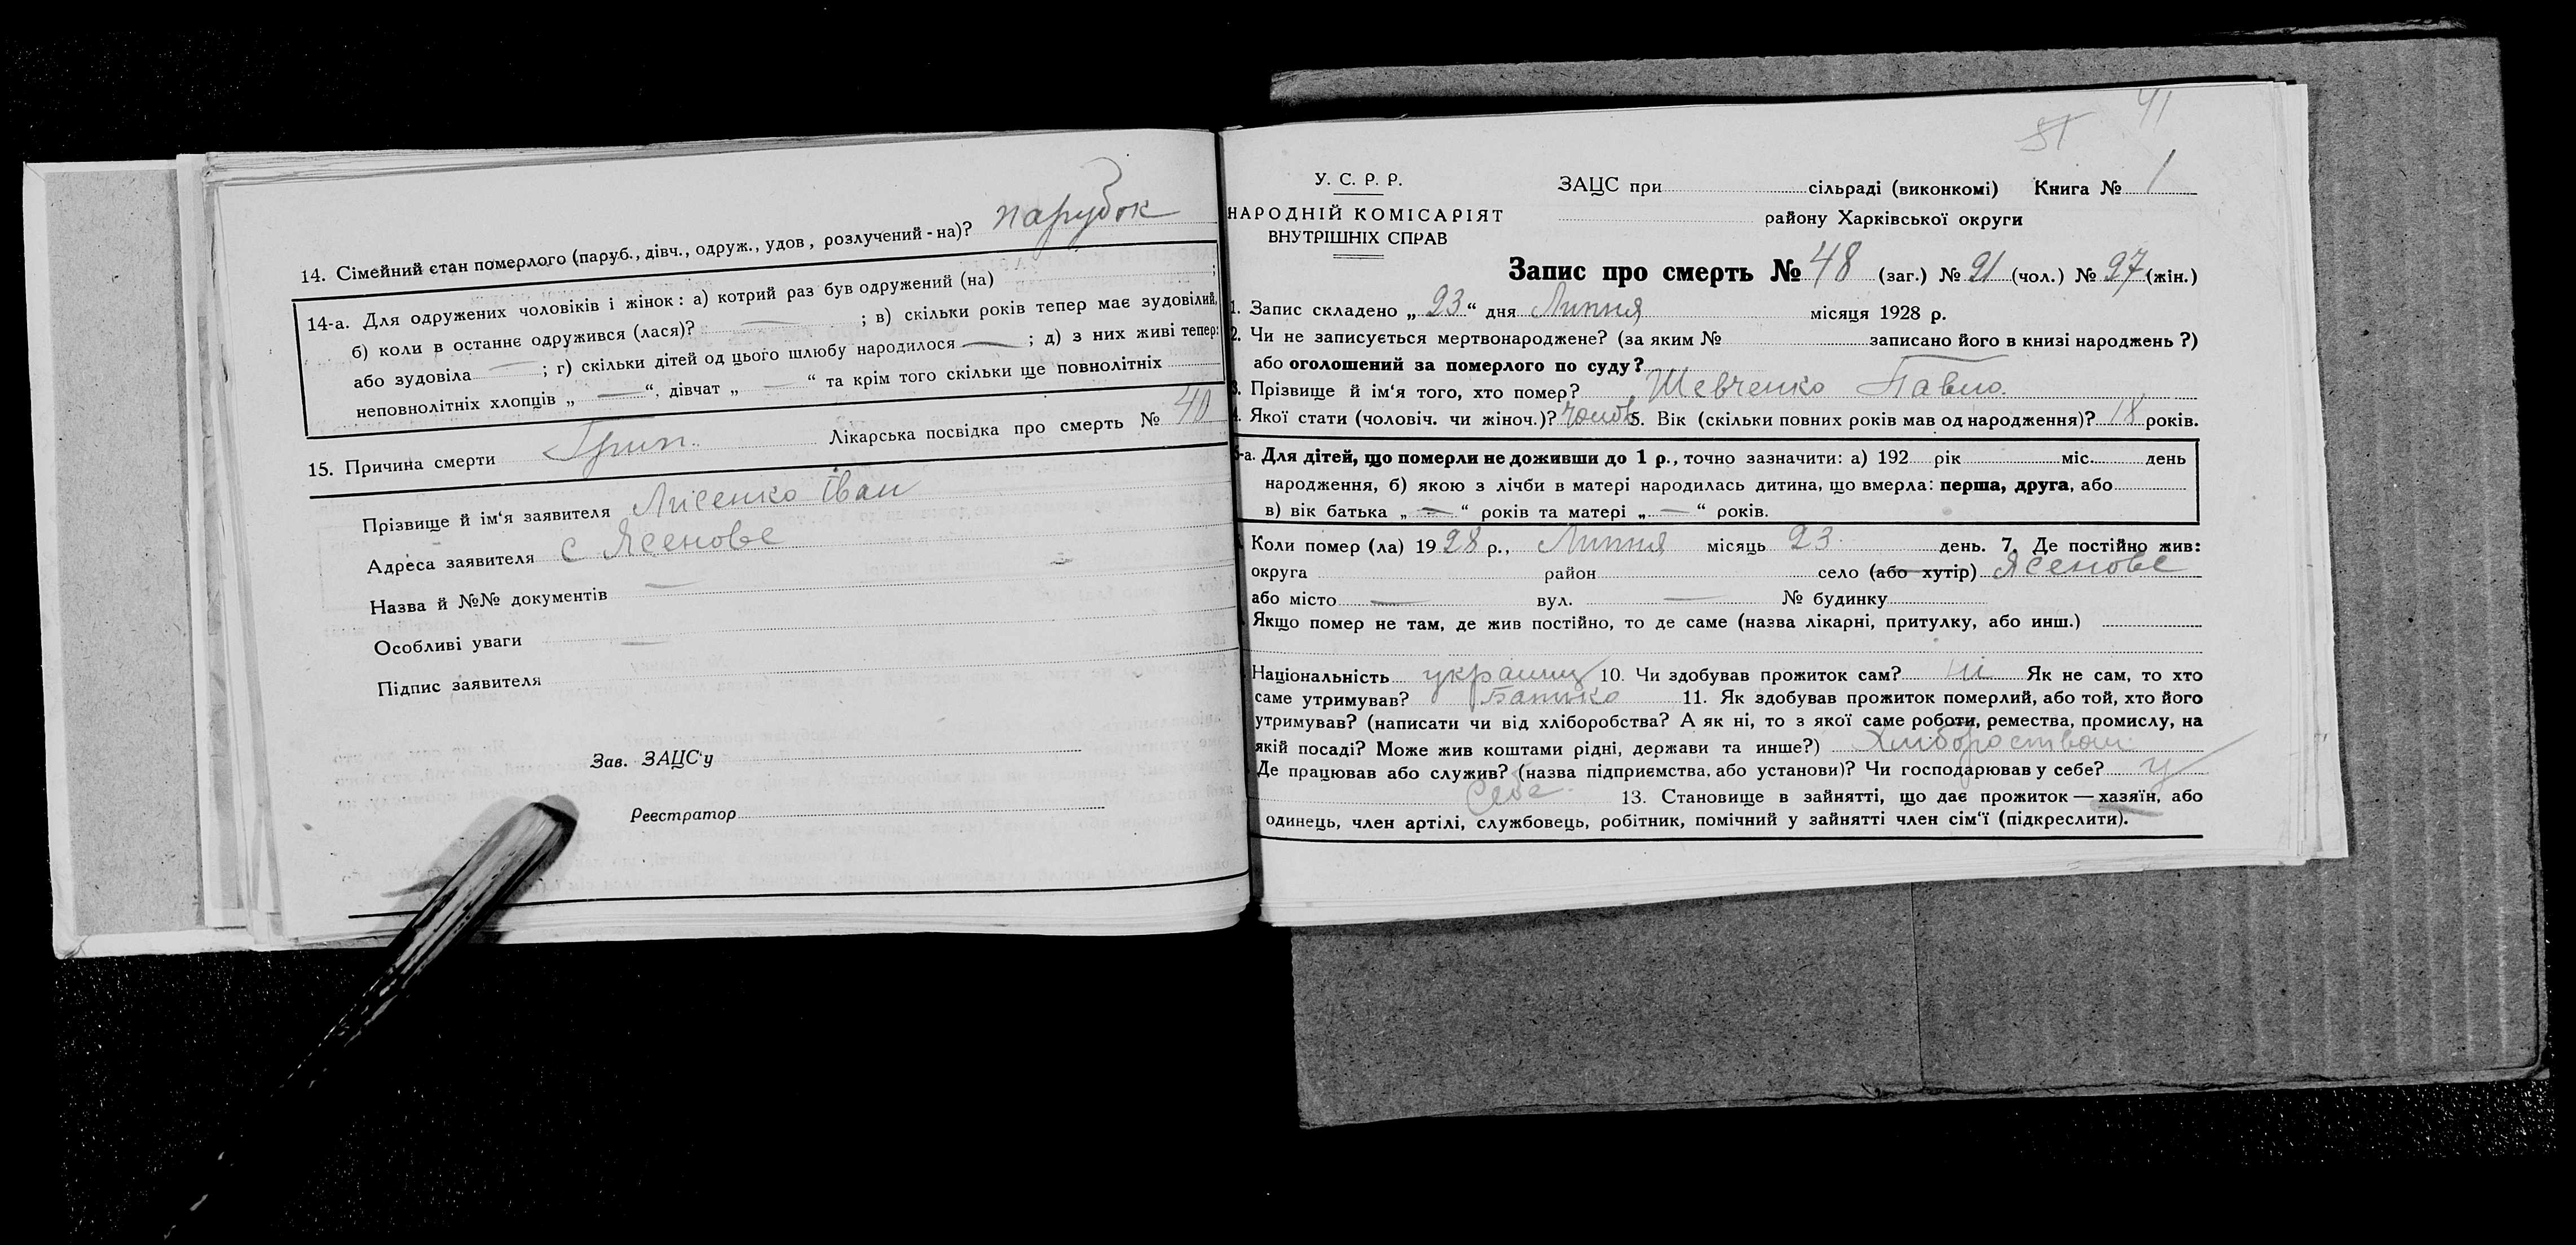 14. Сімейний стан померлого (паруб., дівч., одруж., удов, розлучений-на)? парубок
14-а. Для одружених чоловіків і жінок: а) котрий раз був одружений (на) ;
б) коли в останнє одружився (лася)? — ; в) скільки років тепер має зудовілий,
або зудовіла — ; г) скільки дітей од цього шлюбу народилося — ; д) з них живі тепер:
неповнолітніх хлопців „ — “, дівчат „ — “ та крім того скільки ще повнолітніх
15. Причина смерти Грип. Лікарська посвідка про смерть № 40
Прізвище й ім‘я заявителя Лисенко Іван
Адреса заявителя с Ясенове
Назва й №№ документів —
Особливі уваги —
Підпис заявителя
Зав. ЗАЦС‘у
Реєстратор
41
51
У. С. Р. Р.
НАРОДНІЙ КОМІСАРІЯТ
ВНУТРІШНІХ СПРАВ
ЗАЦС при сільраді (виконкомі) Книга № 1
району Харківської округи
Запис про смерть № 48 (заг.) № 21 (чол.) № 27 (жін.)
1. Запис складено „ 23 “ дня Липня місяця 1928 р.
2. Чи не записується мертвонароджене? (за яким № записано його в книзі народжень?)
або оголошений за померлого по суду? —
3. Прізвище й ім‘я того, хто помер? Шевченко Павло.
4. Якої стати (чоловіч. чи жіноч.)? чолов 5. Вік (скільки повних років мав од народження)? 18 років.
5-а. Для дітей, що померли не доживши до 1 р., точно зазначити: а) 192 рік міс. день
народження, б) якою з лічби в матері народилась дитина, що вмерла: перша, друга, або
в) вік батька „ — “ років та матері „ — “ років.
Коли помер (ла) 1928 р., Липня місяць 23 день. 7. Де постійно жив:
округа район село (або хутір) Ясенове
або місто — вул. — № будинку
Якщо помер не там, де жив постійно, то де саме (назва лікарні, притулку, або инш.)
Національність украинц 10. Чи здобував прожиток сам? ні Як не сам, то хто
саме утримував? Батько 11. Як здобував прожиток померлий, або той, хто його
утримував? (написати чи від хліборобства? А як ні, то з якої саме роботи, ремества, промислу, на
якій посаді? Може жив коштами рідні, держави та инше?) Хлибороством
Де працював або служив? (назва підприємства, або установи)? Чи господарював у себе? у
себе. 13. Становище в зайнятті, що дає прожиток — хазяїн, або
одинець, член артілі, службовець, робітник, помічний у зайнятті член сім‘ї (підкреслити).